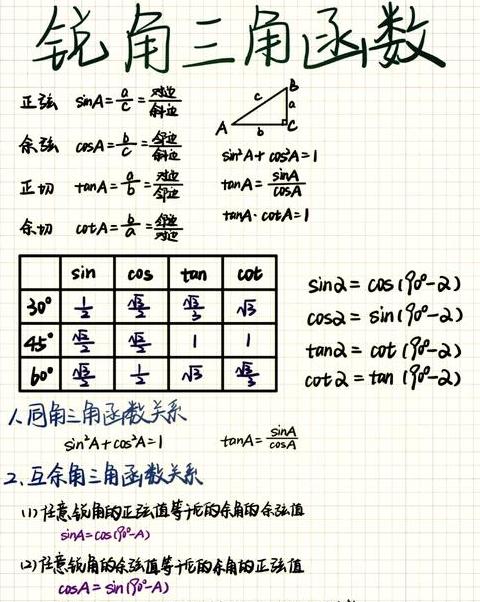 锐角三角函数
正弦 sinA=a/c=对边/斜边
余弦 cosA=b/c=邻边/斜边
正切 tanA=a/b=对边/邻边
余切 cotA=b/a=邻边/对边
A B C a b c
sin²A+cos²A=1
tanA=sinA/cosA
tanA·cotA=1
sin cos tan cot
30° 1/2 √3/2 √3/3 √3
45° √2/2 √2/2 1 1
60° √3/2 1/2 √3 √3/3
sinα=cos(90°-α)
cosα=sin(90°-α)
tanα=cot(90°-α)
cotα=tan(90°-α)
1、同角三角函数关系
sin²A+cos²A=1 tanA=sinA/cosA
2、互余角三角函数关系
(1)任意锐角的正弦值等于它的余角的余弦值
sinA=cos(90°-A)
(2)任意锐角的余弦值等于它的余角的正弦值
cosA=sin(90°-A)